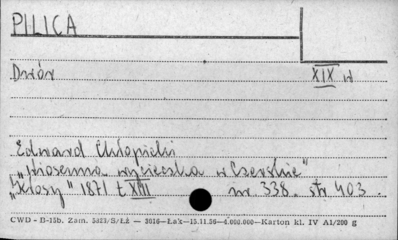 PILICA
Dwór XIX w
Edward Chłopicki
"Wiosenna wycieczka w Czerskie"
"Kłosy" 1871 t XIII nr 338. str 403.
CWD - B-15b. Zam. 5421/S/ŁŻ — 3016—Łak—15.11.56—4.000.000—Karton kl. IV A1/200 g